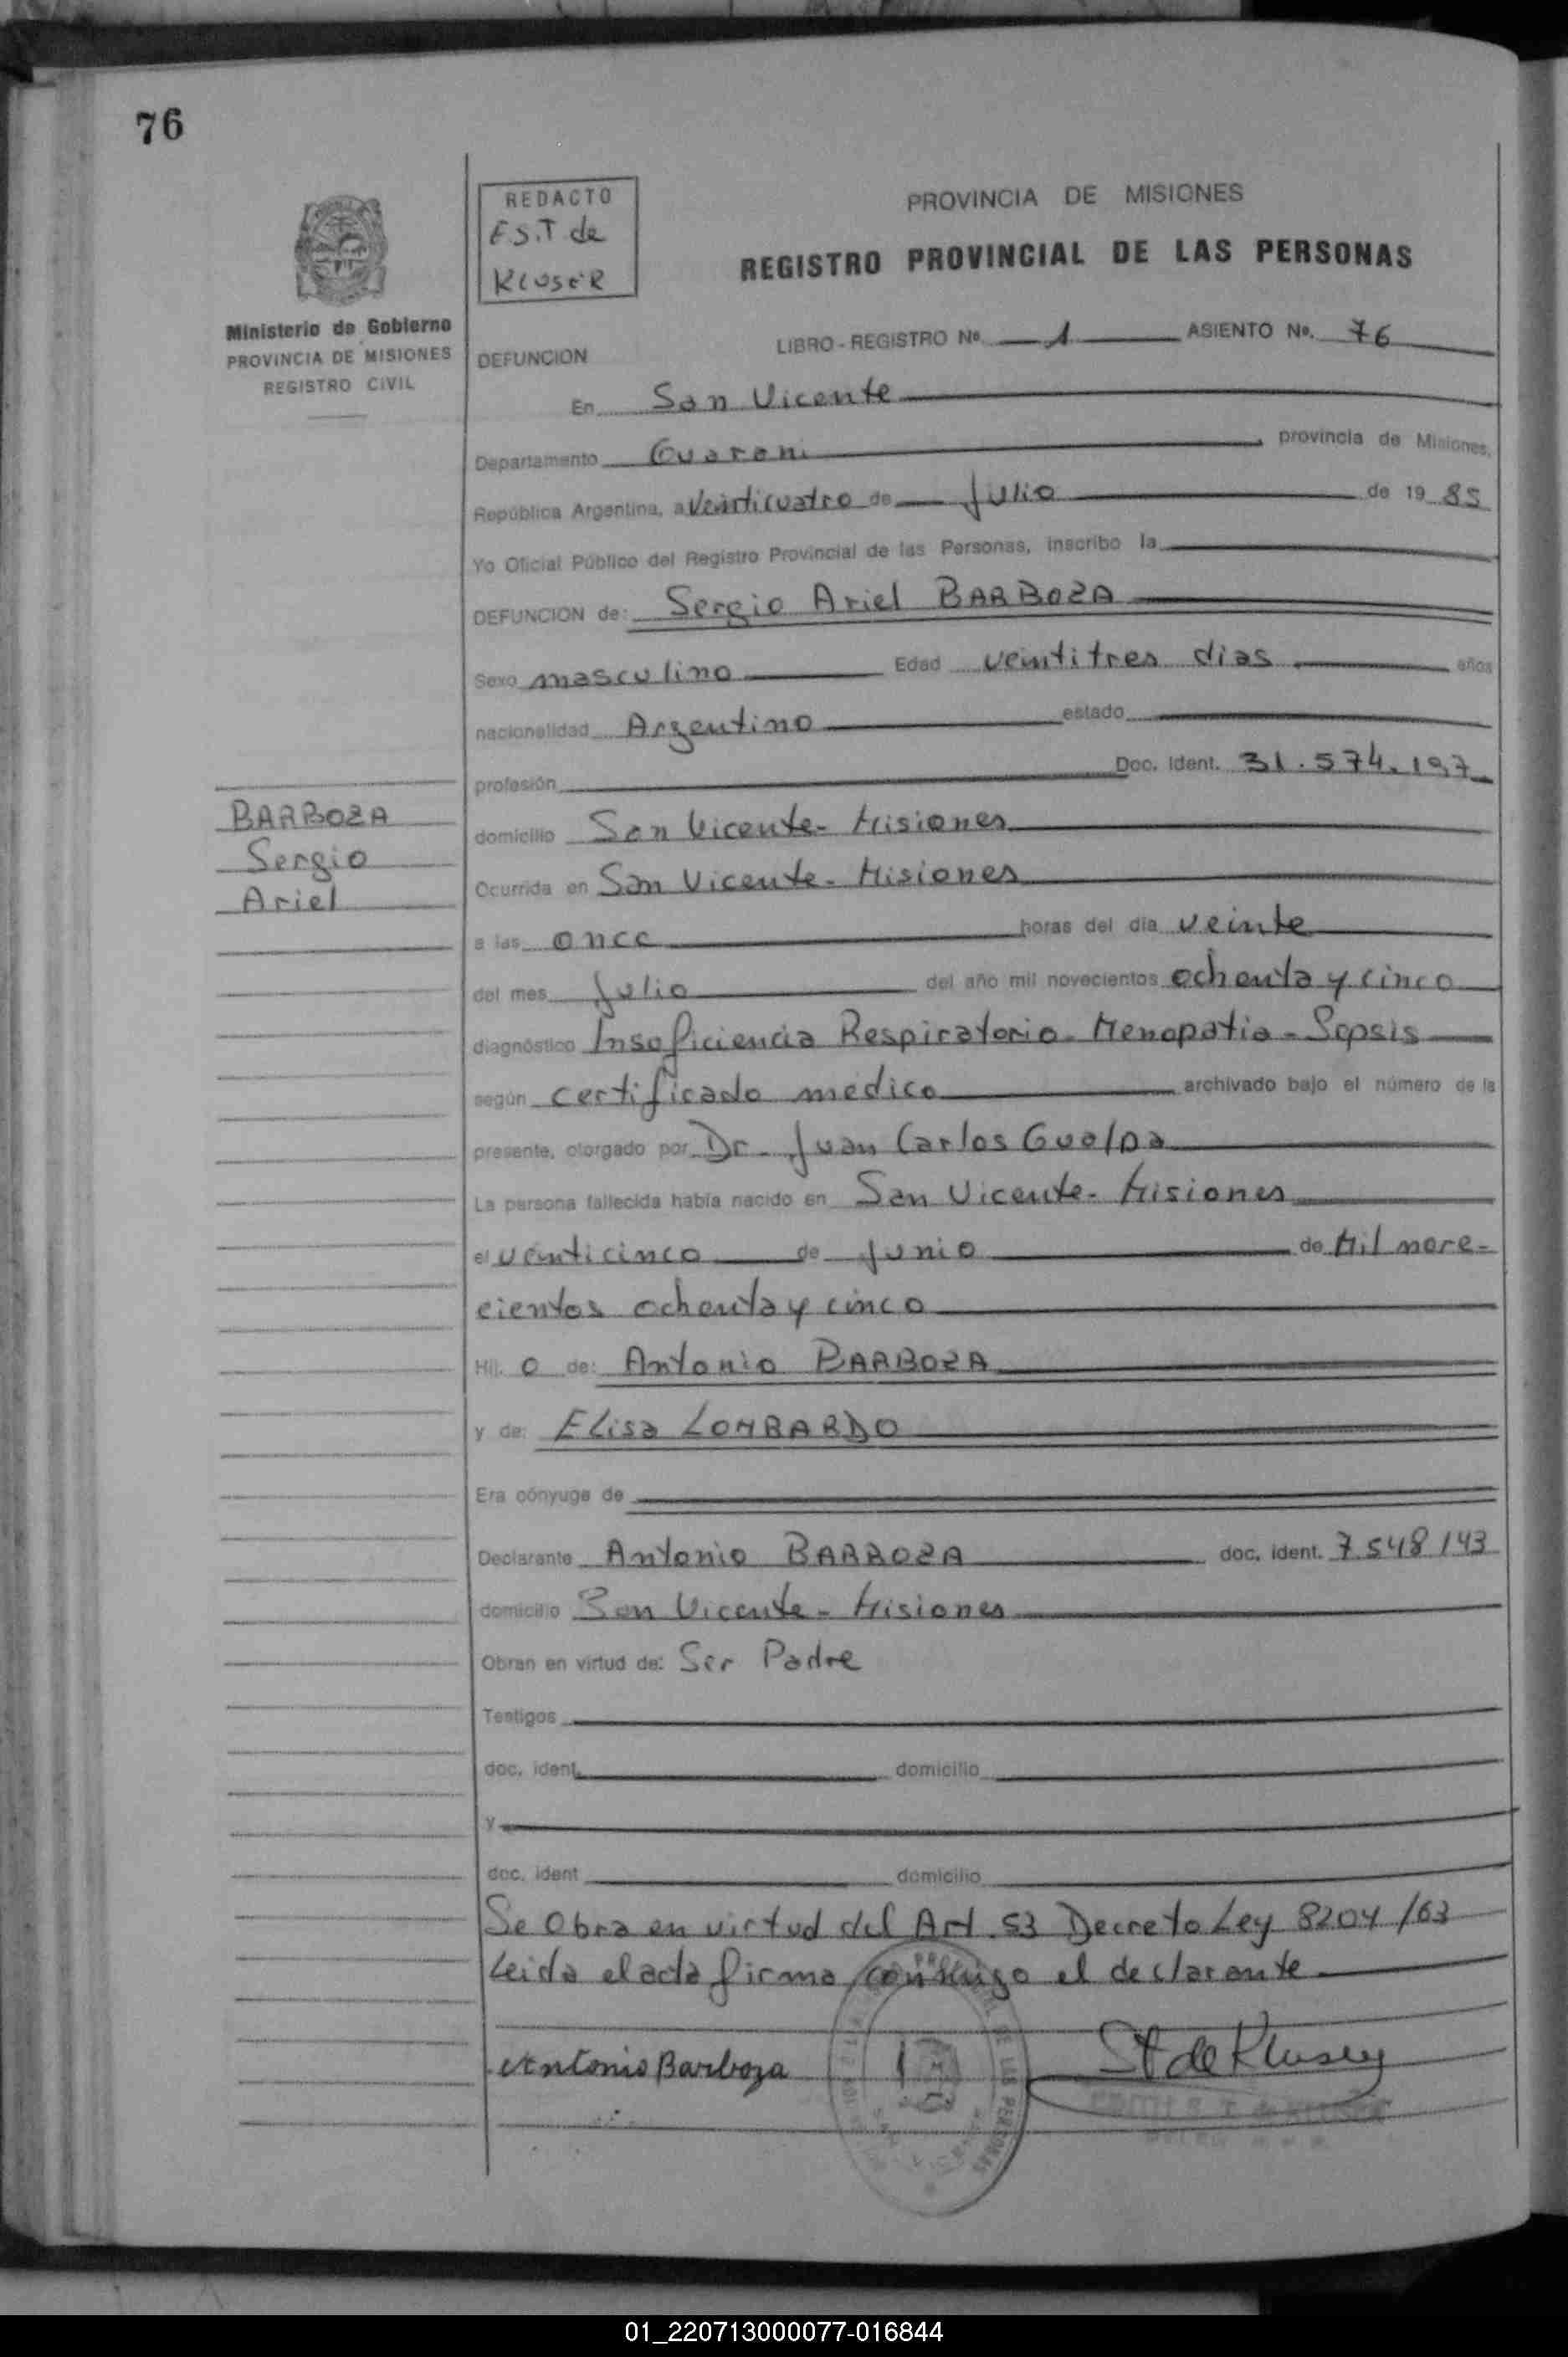 76
REDACTO
E.S.T de
KLUSER
PROVINCIA DE MISIONES
REGISTRO PROVINCIAL DE LAS PERSONAS
Ministerio de Gobierno
PROVINCIA DE MISIONES
REGISTRO CIVIL
LIBRO - REGISTRO Nº. 1 ASIENTO Nº. 76
DEFUNCION
En San Vicente
Departamento Guarani provincia de Misiones,
República Argentina, a Veinticuatro de Julio de 19 85
Yo Oficial Público del Registro Provincial de las Personas, inscribo la
DEFUNCION de: Sergio Ariel BARBOZA
Sexo masculino Edad veintitres dias años
nacionalidad Argentino estado
profesión Doc. Ident. 31.574.197
BARBOZA
Sergio
Ariel
domicilio San Vicente - Misiones
Ocurrida en San Vicente - Misiones
a las once horas del día veinte
del mes Julio del año mil novecientos ochenta y cinco
diagnóstico Insuficiencia Respiratoria - Menopatia - Sepsis
según certificado medico archivado bajo el número de la
presente, otorgado por Dr. Juan Carlos Gualpa
La persona fallecida había nacido en San Vicente - Misiones
el venticinco de Junio de Mil nove-
cientos ochenta y cinco
Hij o de: Antonio BARBOZA
y de: Elisa LOMBARDO
Era cónyuge de
Declarante Antonio BARBOZA doc. ident. 7.548143
domicilio San Vicente - Misiones
Obran en virtud de: Ser Padre
Testigos
doc. ident. domicilio
y
doc. ident domicilio
Se Obra en virtud del Art. 53 Decreto Ley 8204/63
Leida el acta firma conmigo el declarante
Antonio Barboza
St de Kluser
DE LAS PERSONAS
01_220713000077-016844